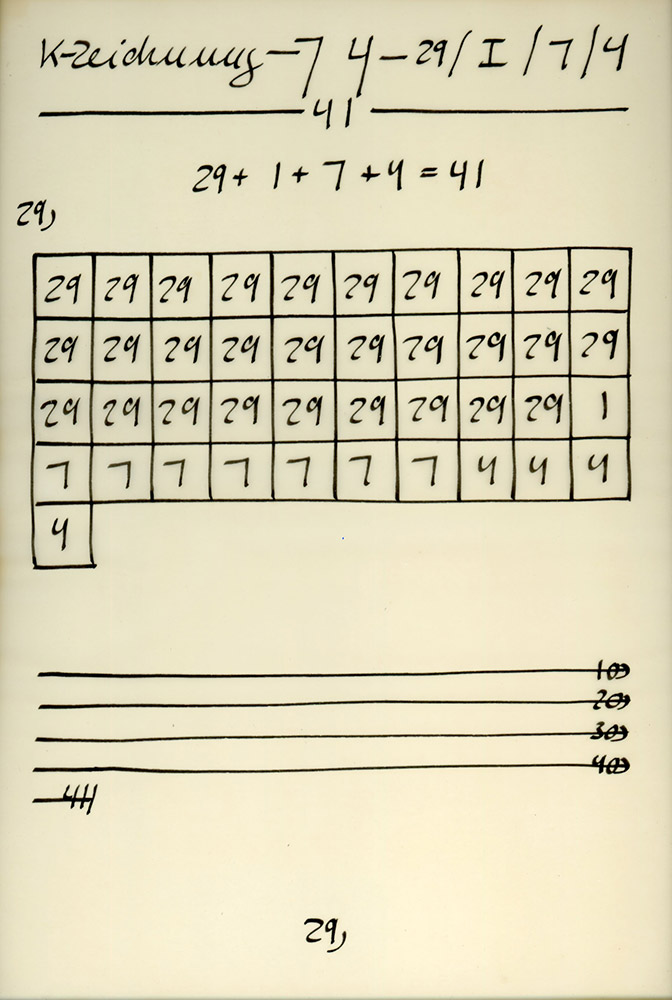 K-Zeichnung-74-29/I/7/4
41
29+ 1+ 7 +4 = 41
29,
29 29 29 29 29 29 29 29 29 29
29 29 29 29 29 29 29 29 29 29
29 29 29 29 29 29 29 29 29 1
7 7 7 7 7 7 7 4 4 4
4
10,
20,
30,
40,
41
29,